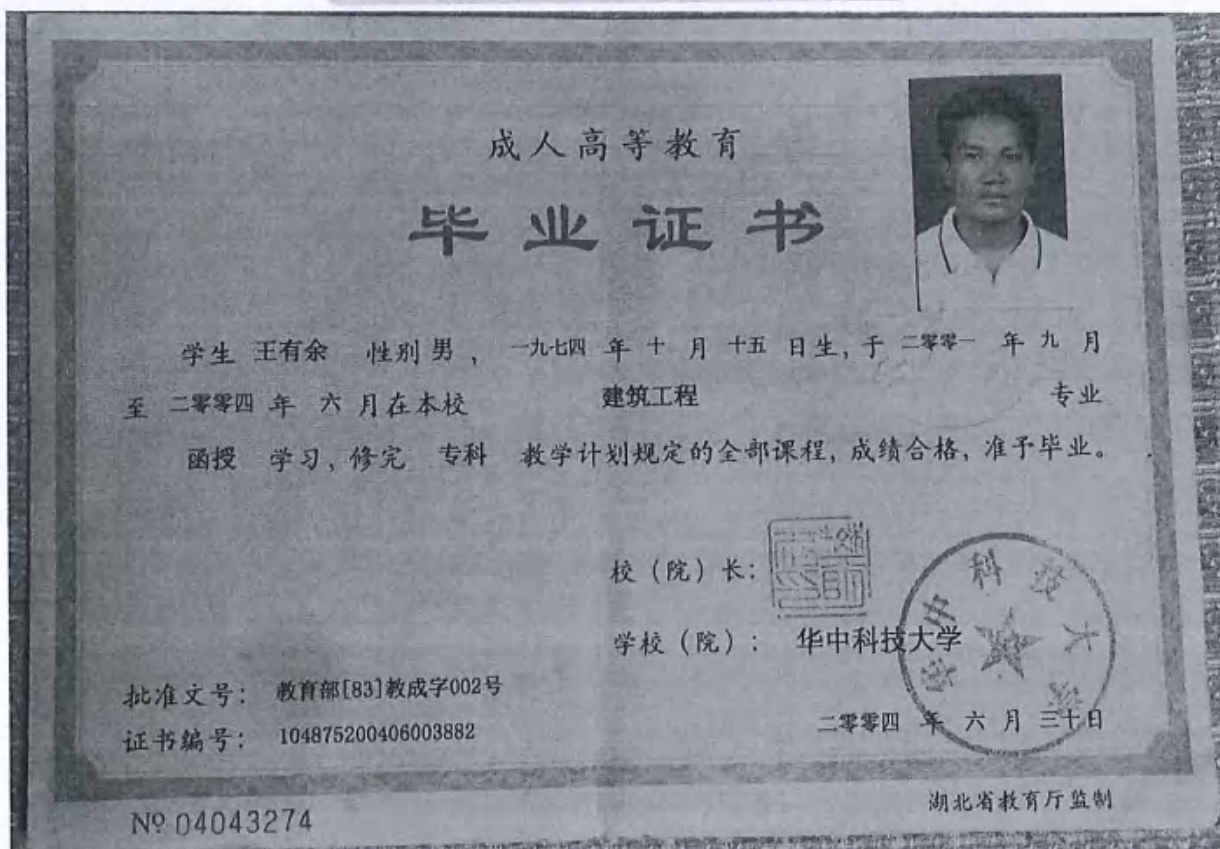 成人高等教育
毕业证书
学生 王有余 性别 男 , 一九七四 年 十 月 十五 日生, 于 二零零一 年 九 月
至 二零零四 年 六 月在本校 建筑工程 专业
函授 学习, 修完 专科 教学计划规定的全部课程, 成绩合格, 准予毕业。
校（院）长:
学校（院）: 华中科技大学
华中科技大学
批准文号: 教育部[83]教成字002号
二零零四 年 六 月 三十日
证书编号: 104875200406003882
湖北省教育厅监制
№ 04043274